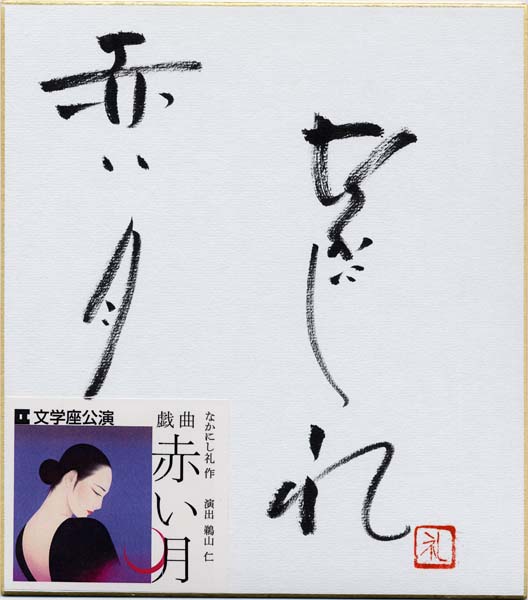 なかにし礼
赤い月
礼
文学座公演
なかにし礼 作 演出 鵜山 仁
戯曲
赤い月